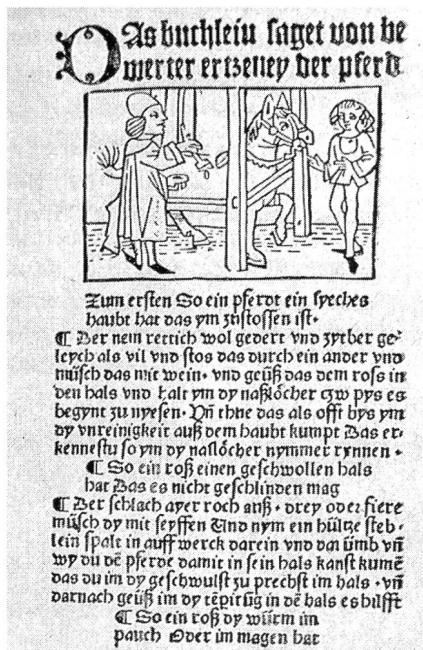 DAs buchlein saget von be
werter ertzeney der pferd
Zum ersten So ein pferdt ein syeches
haubt hat das ym zustossen ist.
¶ Der nem rettich wol gedert vnd zyther ge⸗
leych als vil vnd stos das durch ein ander vnd
müsch das mit wein. vnd geüß das dem ross in
den hals vnd halt ym dy naßlöcher czw pys es
begynt zu nyesen. Vñ thne das als offt bys ym
dy vnreinigkeit auß dem haubt kumpt Das er⸗
kennestu so ym dy naslöcher nymmer rynnen.
¶ So ein roß einen geschwollen hals
hat Das es nicht geschlinden mag
¶ Der schlach ayer roch auß. drey oder fiere
müsch dy mit seyffen Vnd nym ein hültze steb⸗
lein spalt in auff werck darein vnd da ümb vñ
wy du dē pferde damit in sein hals kanst kumē
das du im dy geschwulst zu prechst im hals. vñ
darnach geüß im dy tēpitüg in dē hals es hilfft
¶ So ein roß dy würm im
pauch Oder im magen hat